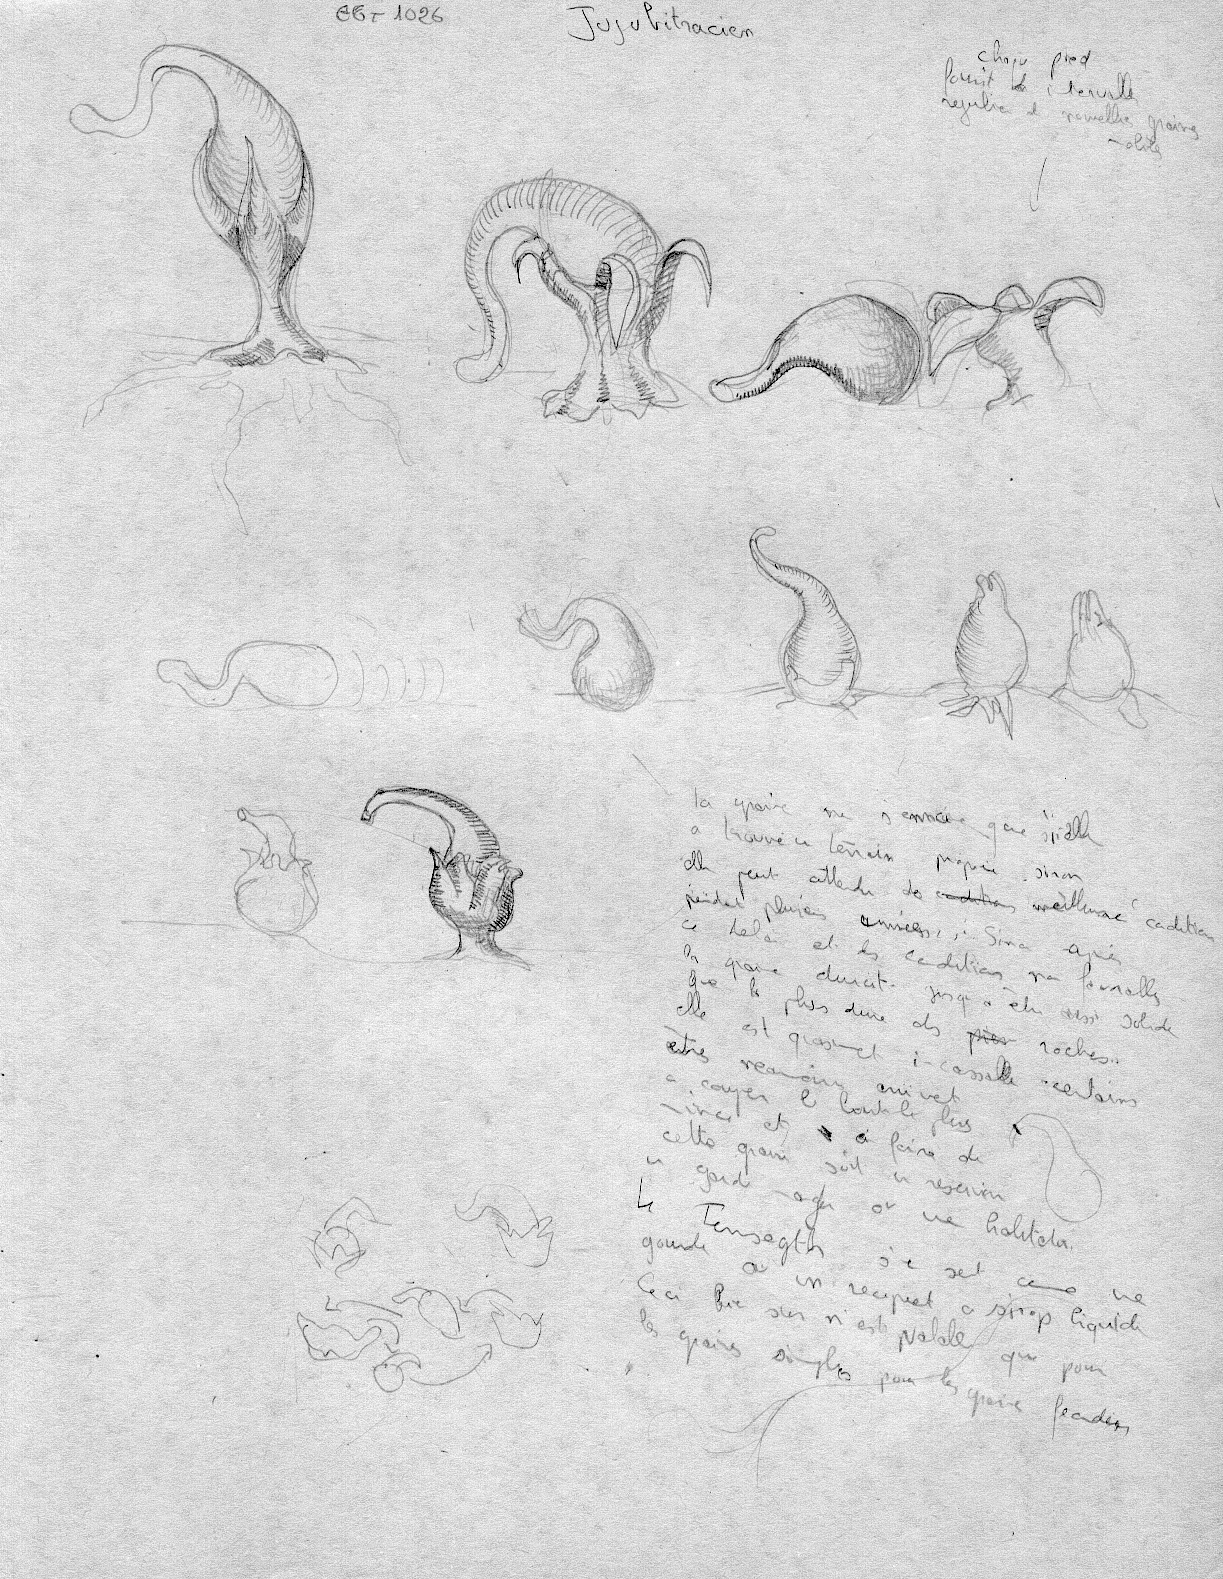 EGT 1026
Jujubitracien
chaque pied
fournit à intervalle
regulier de nouvelles graines
mobiles
la graine ne s'enracine que si elle
a trouvé un terrain propice sinon
elle peut attendre de conditions meilleures conditions
pendant plusieurs années, sinon après
ce delà et des conditions non favorables
la graine durcit jusqu'à être aussi solide
que la plus dure des pier roches.
elle est quasiment incassable certains
êtres néanmoins arrivent
a couper le bout le plus
mince et à faire de
cette graine soit un réservoir
un garde manger ou une habitation.
Le s'en sert comme une
gourde ou un recipient a sirop liquide
Ceci bien sur n'est valable que pour
les graines simples pour les graines fecondees